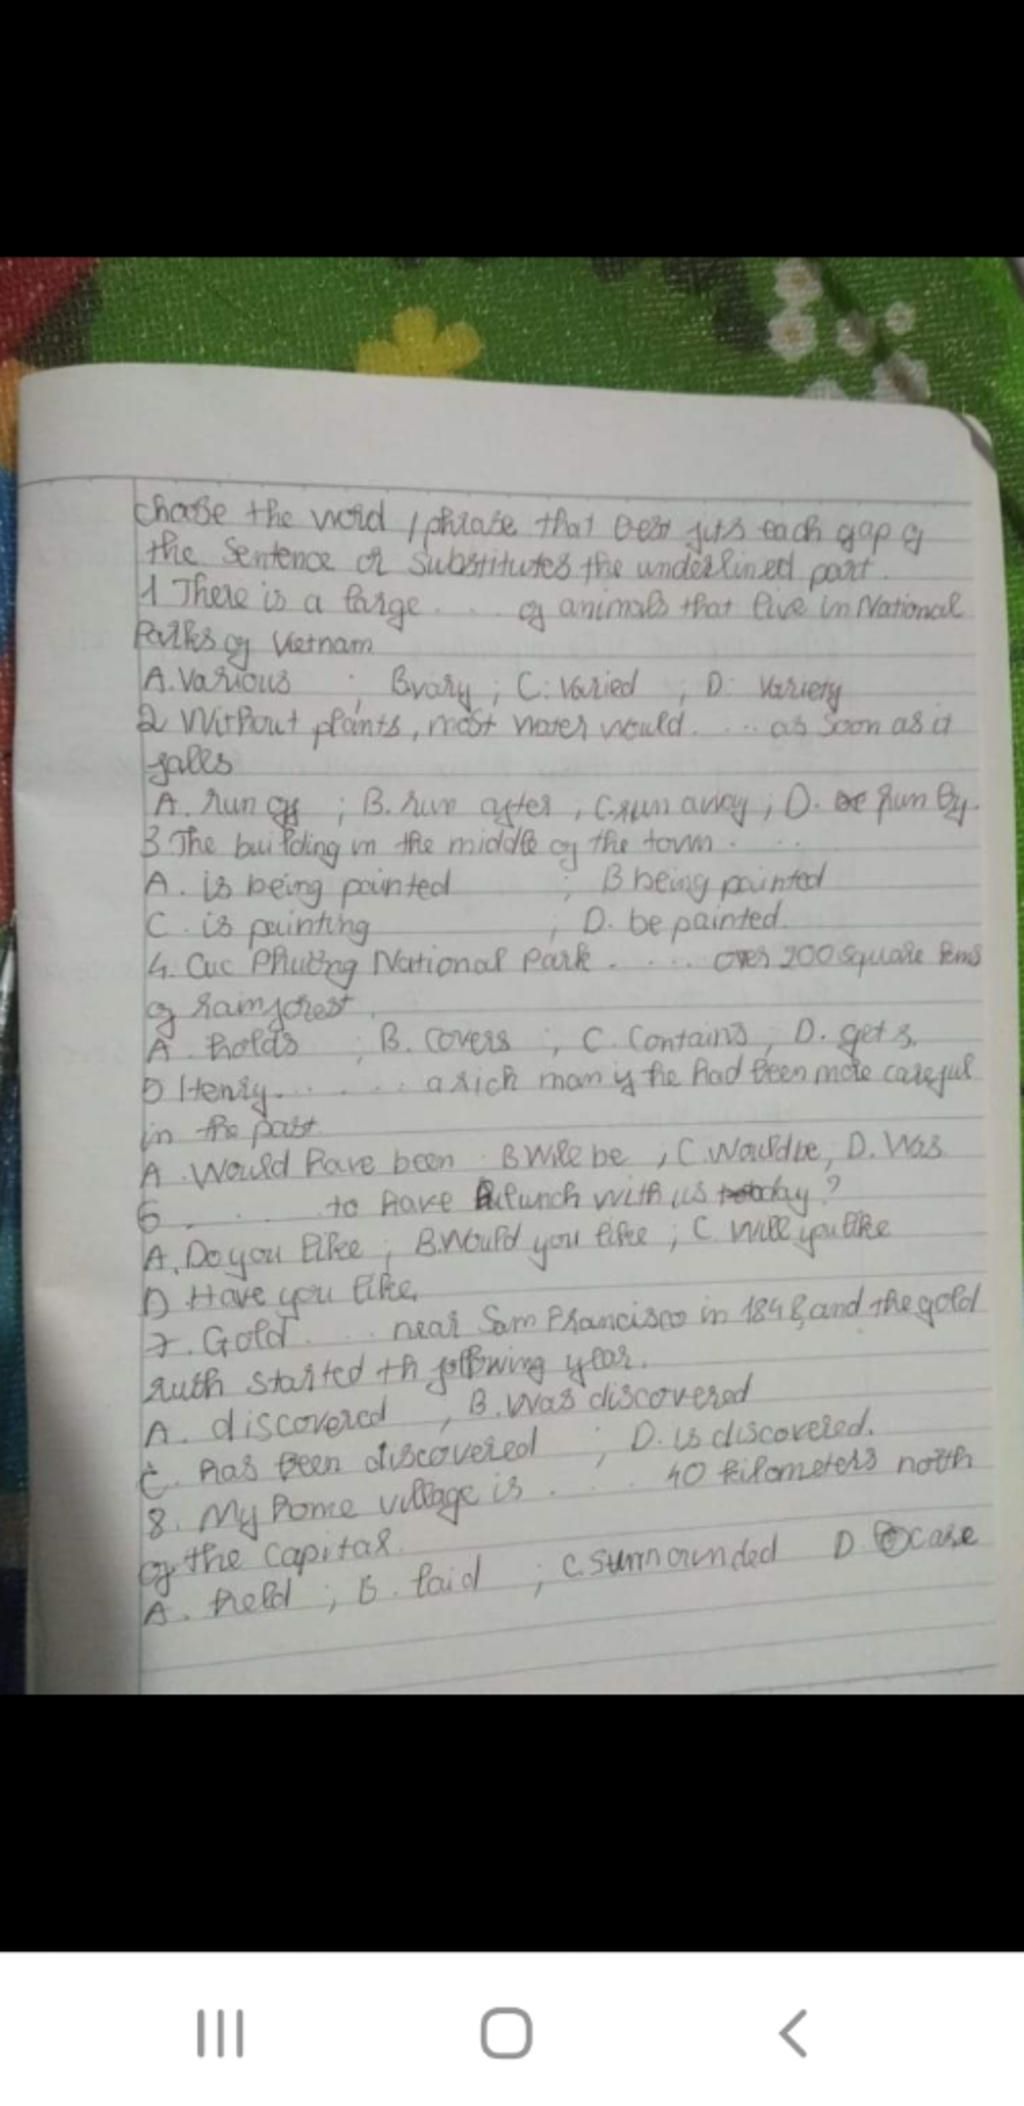 choose the word / phrase that best fits each gap of
the sentence or substitutes the underlined part.
1 There is a large .... of animals that live in National
Parks of Vietnam
A. Various ; B vary ; C: Varied ; D: Variety
2 Without plants, most water would .... as soon as it
falls
A. run off ; B. run after ; C. run away ; D. run by.
3 The building in the middle of the town ....
A. is being painted ; B being painted
C. is painting ; D. be painted.
4. Cuc Phương National Park .... over 200 square kms
of rainforest.
A. holds ; B. covers ; C. Contains, D. gets.
5 Henry ...... a rich man if he had been more careful
in the past
A. Would have been B Will be , C. Would be, D. Was
6 .... to have lunch with us today ?
A. Do you like ; B. Would you like ; C. Will you like
D. Have you like.
7. Gold .... near San Francisco in 1848, and the gold
ruth started th following year.
A. discovered , B. Was discovered
C. has been discovered ; D. is discovered.
8. My home village is .... 40 kilometers north
of the capital.
A. held ; B. laid ; C. surrounded D.